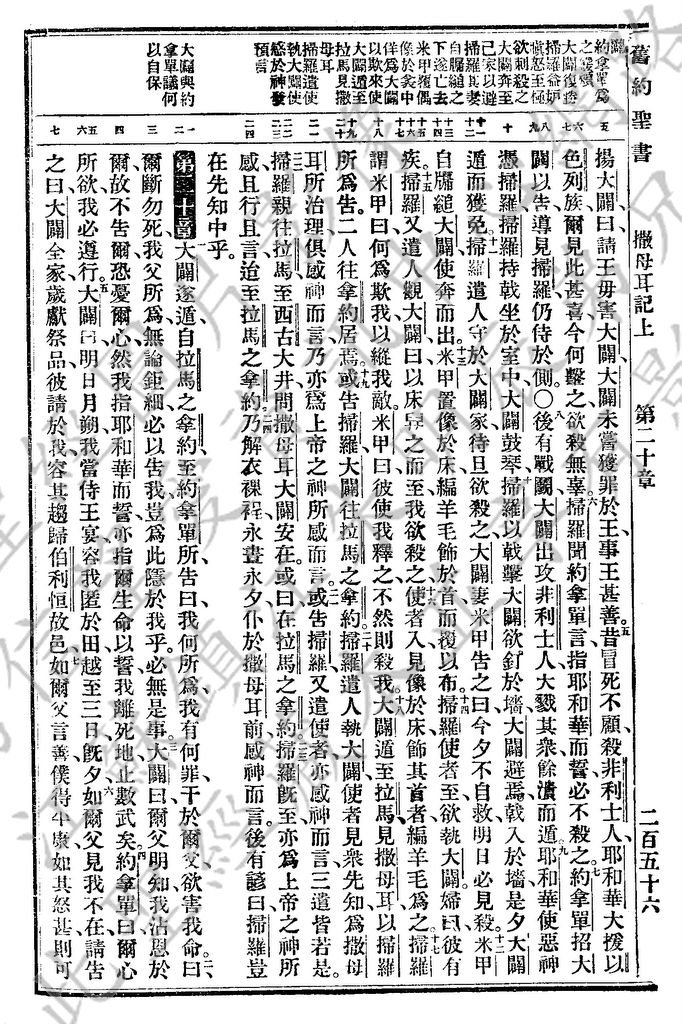 舊約聖書 撒母耳記上 第二十章 二百五十六
闢
約拿單為
之緩頰
大闢復勝
掃羅益妒
憤怒至極
欲刺殺之
大闢奔至
己家以避
掃羅其妻
自牖縋之
下遂亡去
米甲覆偶
像於衾中
佯為大闢
以欺來使
大闢遁至
拉馬見撒
母耳
掃羅遣使
執大闢使
感於神發
預言
大闢與約
拿單議何
以自保
五 揚大闢曰請王毋害大闢大闢未嘗獲罪於王事王甚善五昔冒死不顧殺非利士人耶和華大援以
六七 色列族爾見此甚喜今何鑿之欲殺無辜六掃羅聞約拿單言指耶和華而誓必不殺之七約拿單招大
八九 闢以告導見掃羅仍侍於側〇八後有戰大闢出攻非利士人大戮其眾餘潰而遁九耶和華使惡神
十 憑掃羅掃羅持戟坐於室中大闢鼓琴十掃羅以戟擊大闢欲釘於墻大闢避焉戟入於墻是夕大闢
十一 遁而獲免十一掃羅遣人守於大闢家待旦欲殺之大闢妻米甲告之曰今夕不自救明日必見殺十二米甲
十三十四 自牖縋大闢使奔而出十三米甲置像於床編羊毛飾於首而覆以布十四掃羅使者至欲執大闢婦曰彼有
十六十七 疾十五掃羅又遣人觀大闢曰以床舁之而至我欲殺之十六使者入見像於床飾其首者編羊毛為之十七掃羅
十八 謂米甲曰何為欺我以縱我敵米甲曰彼使我釋之不然則殺我十八大闢遁至拉馬見撒母耳以掃羅
十九二十 所為告二人往拿約居焉十九或告掃羅大闢往拉馬之拿約二十掃羅遣人執大闢使者見眾先知為撒母
二一 耳所治理俱感神而言乃亦為上帝之神所感而言二一或告掃羅又遣使者亦感神而言三遣皆若是
二二二三 掃羅親往拉馬至西古大井問撒母耳大闢安在或曰在拉馬之拿約二三掃羅既至亦為上帝之神所
二四 感且行且言迨至拉馬之拿約二四乃解衣裸裎永晝永夕仆於撒母耳前感神而言後有諺曰掃羅豈
在先知中乎
一二 第二十章一大闢遂遁自拉馬之拿約至約拿單所告曰我何所為我有何罪干於爾父欲害我命二曰
三 爾斷勿死我父所為無論鉅細必以告我豈為此隱於我乎必無是事三大闢曰爾父明知我沾恩於
四 爾故不告爾恐憂爾心然我指耶和華而誓亦指爾生命以誓我離死地止數武矣四約拿單曰爾心
五六 所欲我必遵行五大闢曰明日月朔我當侍王宴容我匿於田越至三日既夕六如爾父見我不在請告
七 之曰大闢全家歲獻祭品彼請於我容其趨歸伯利恒故邑七如爾父言善僕得平康如其怒甚則可